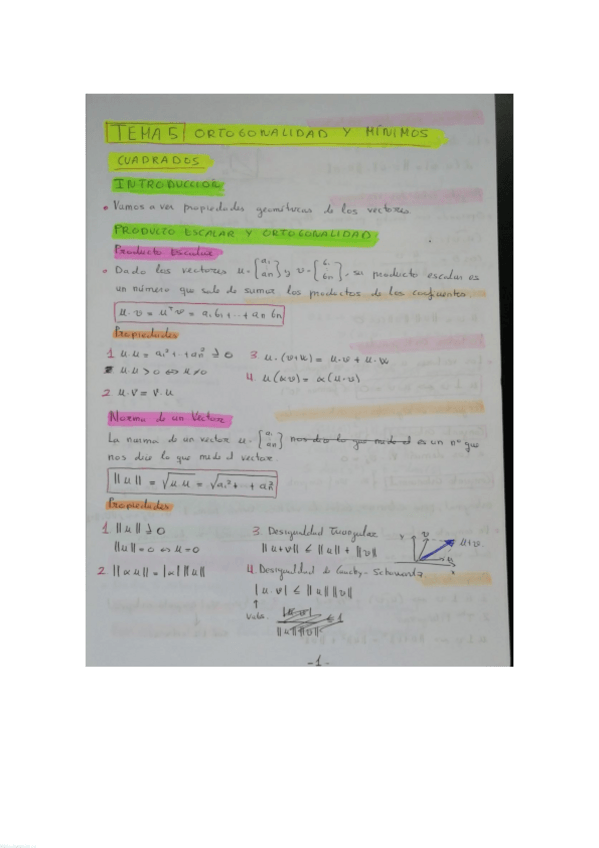 TEMA 5 ORTOGONALIDAD Y MÍNIMOS
CUADRADOS
INTRODUCCION
• Vamos a ver propiedades geométricas de los vectores
PRODUCTO ESCALAR Y ORTOGONALIDAD
Producto Escalar
• Dado los vectores u = [a₁ aₙ] y v = [b₁ bₙ], su producto escalar es
un número que sale de sumar los productos de los coeficientes
u · v = uᵀv = a₁b₁ + ·· + aₙbₙ
Propiedades
1 u·u = a₁² + ·· + aₙ² ≥ 0 3 u·(v+w) = u·v + u·w
u·u > 0 ⇔ u ≠ 0 4. u(αv) = α(u·v)
2 u·v = v·u
Norma de un Vector
La norma de un vector u = [a₁ aₙ] nos dice lo que mide el es un nº que
nos dice lo que mide el vector
||u|| = √u·u = √a₁² + ·· + aₙ²
Propiedades
1 ||u|| ≥ 0 3. Desigualdad Triangular
||u|| = 0 ⇔ u = 0 ||u+v|| ≤ ||u|| + ||v||
v u+v
2 ||αu|| = |α| ||u|| 4. Desigualdad de Cauchy-Schwarz
|u·v| ≤ ||u|| ||v||
|u·v| ≤ 1
||u|| ||v||
-1-